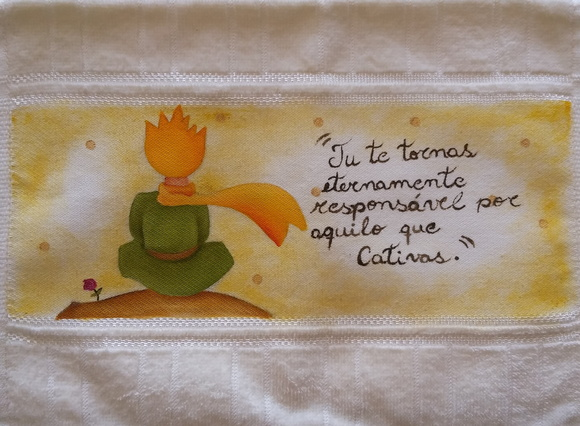 "Tu te tornas
eternamente
responsável por
aquilo que
Cativas."